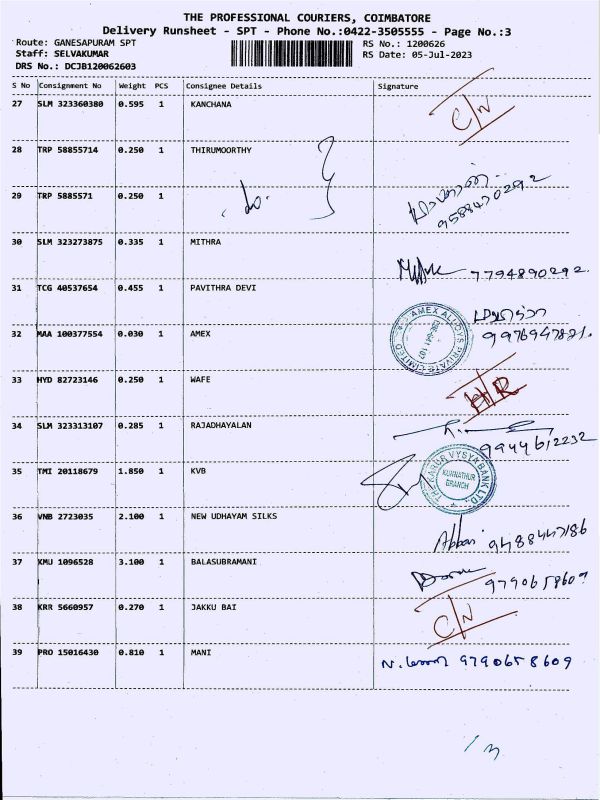 THE PROFESSIONAL COURIERS, COIMBATORE
Delivery Runsheet - SPT - Phone No.:0422-3505555 - Page No.:3
Route: GANESAPURAM SPT
RS No.: 1200626
Staff: SELVAKUMAR
RS Date: 05-Jul-2023
DRS No.: DCJB120062603
S No Consignment No Weight PCS Consignee Details Signature
27 SLM 323360380 0.595 1 KANCHANA C/N
28 TRP 58855714 0.250 1 THIRUMOORTHY
29 TRP 5885571 0.250 1
30 SLM 323273875 0.335 1 MITHRA 7794890292.
31 TCG 40537654 0.455 1 PAVITHRA DEVI
32 MAA 100377554 0.030 1 AMEX AMEX ALLOYS PRIVATE LIMITED
33 HYD 82723146 0.250 1 WAFE
34 SLM 323313107 0.285 1 RAJADHAYALAN 9944612232
35 TMI 20118679 1.850 1 KVB THE KARUR VYSYA BANK LTD. BRANCH
36 VNB 2723035 2.100 1 NEW UDHAYAM SILKS Abbas
37 KMU 1096528 3.100 1 BALASUBRAMANI 9790658609
38 KRR 5660957 0.270 1 JAKKU BAI C/N
39 PRO 15016430 0.810 1 MANI 9790658609